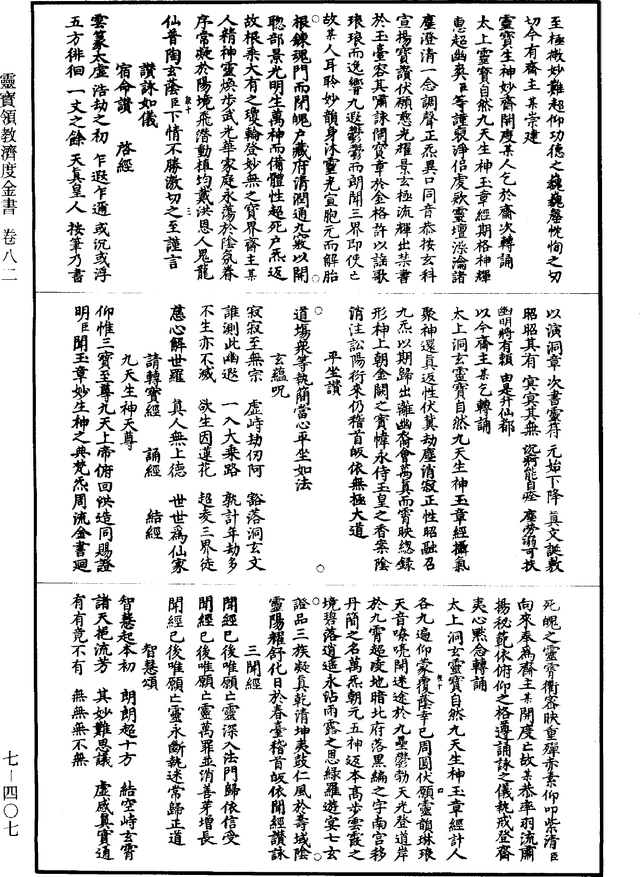 至極微妙難超仰功德之巍巍罄忱恂之切
切今有齋主某崇建
靈寶生神妙齋開度某人乞於齋次轉誦
太上靈寶自然九天生神玉章經期格神輝
惠超幽爽臣等謹寂淨侶虔歌靈壇滌淪諸
塵澄清一念調聲正炁異口同音恭按玄科
宣揚寶讚伏願慈光耀景玄極流輝出禁書
於玉臺容其嘯詠開寶章於金格許以謠歌
琅琅而逸響九遐鬱鬱而朗開三界即使亡
故某人耳聆妙韻身沐靈光宣胞元而解胎
根鍊魂門而閉魄戶藏府清潤通九竅以開
聰部景光明生萬神而備體性超死戶炁返
故根乘大有之瓊輪登妙無之寶界齋主某
人精神靈煥步武光華家庭永蕩於陰氛眷
序常凝於陽境飛潛動植均戴洪恩人鬼龍
仙普陶玄蔭臣下情不勝激切之至謹言
讚詠如儀
宿命讚　啓經
雲篆太虛　浩劫之初　乍遐乍邇　或沉或浮
五方徘徊　一丈之餘　天真皇人　按筆乃書
以演洞章　次書靈符　元始下降　真文誕敷
昭昭其有　冥冥其無　沉痾能自痊　塵勞溺可扶
幽明將有賴　由是升仙都
以今齋主某乞轉誦
太上洞玄靈寶自然九天生神玉章經攝氣
聚神還真返性伏冀劫塵消寂正性昭融召
九炁以期歸出離幽裔會萬真而霄映緫錄
形神上朝金闕之寶幃永侍玉皇之香案陰
消注訟陽衍來仍稽首皈依無極大道
平坐讚
道場衆等執簡當心平坐如法
玄蘊呪
寂寂至無宗　虛峙劫仞阿　豁落洞玄文
誰測此幽遐　一入大乘路　孰計年劫多
不生亦不滅　欲生因蓮花　超凌三界徒
慈心解世羅　真人無上德　世世爲仙家
請轉寶經　誦經　結經
九天生神天尊
仰惟三寶至尊九天上帝俯回鈌造同賜證
明臣聞玉章妙生神之典梵炁周流金書迴
死魄之靈霄衢容映重殫赤素仰叩紫清臣
向來奉爲齋主某開度亡故某恭率羽流肅
揚秘範依俯仰之格遵誦詠之儀執戒登齋
夷心黙念轉誦
太上洞玄靈寶自然九天生神玉章經計人
各九遍仰蒙覆蔭幸已周圓伏願靈韻琳琅
天音嘹亮開迷途於九壘鬱勃天光登道岸
於九霄超度地暗北府落黑編之字南宮移
丹簡之名萬炁朝元五神返本高步雲霞之
境碧落逍遙永沾雨露之恩綠羅遊宴七玄
證品三族凝真乾清坤夷鼓仁風於壽域陰
靈陽耀舒化日於春臺稽首皈依開經讚詠
三聞經
聞經已後唯願亡靈深入法門歸依信受
聞經已後唯願亡靈萬罪並消善芽增長
聞經已後唯願亡靈永斷執迷常歸正道
智慧頌
智慧起本初　朗朗超十方　結空峙玄霄
諸天挹流芳　其妙難思議　虛感真實通
有有竟不有　無無無不無
靈寶領教濟度金書　卷八二
七—四〇七